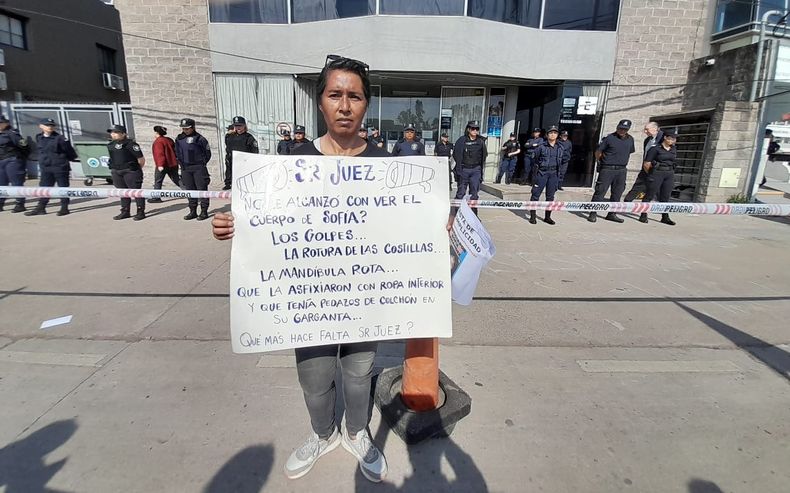 SR JUEZ
NO LE ALCANZÓ CON VER EL
CUERPO DE SOFÍA?
LOS GOLPES...
LA ROTURA DE LAS COSTILLAS...
LA MANDIBULA ROTA...
QUE LA ASFIXIARON CON ROPA INTERIOR
Y QUE TENÍA PEDAZOS DE COLCHÓN EN
SU GARGANTA...
QUÉ MÁS HACE FALTA SR JUEZ?
PELIGRO
PELIGRO
PELIGRO
PELIGRO